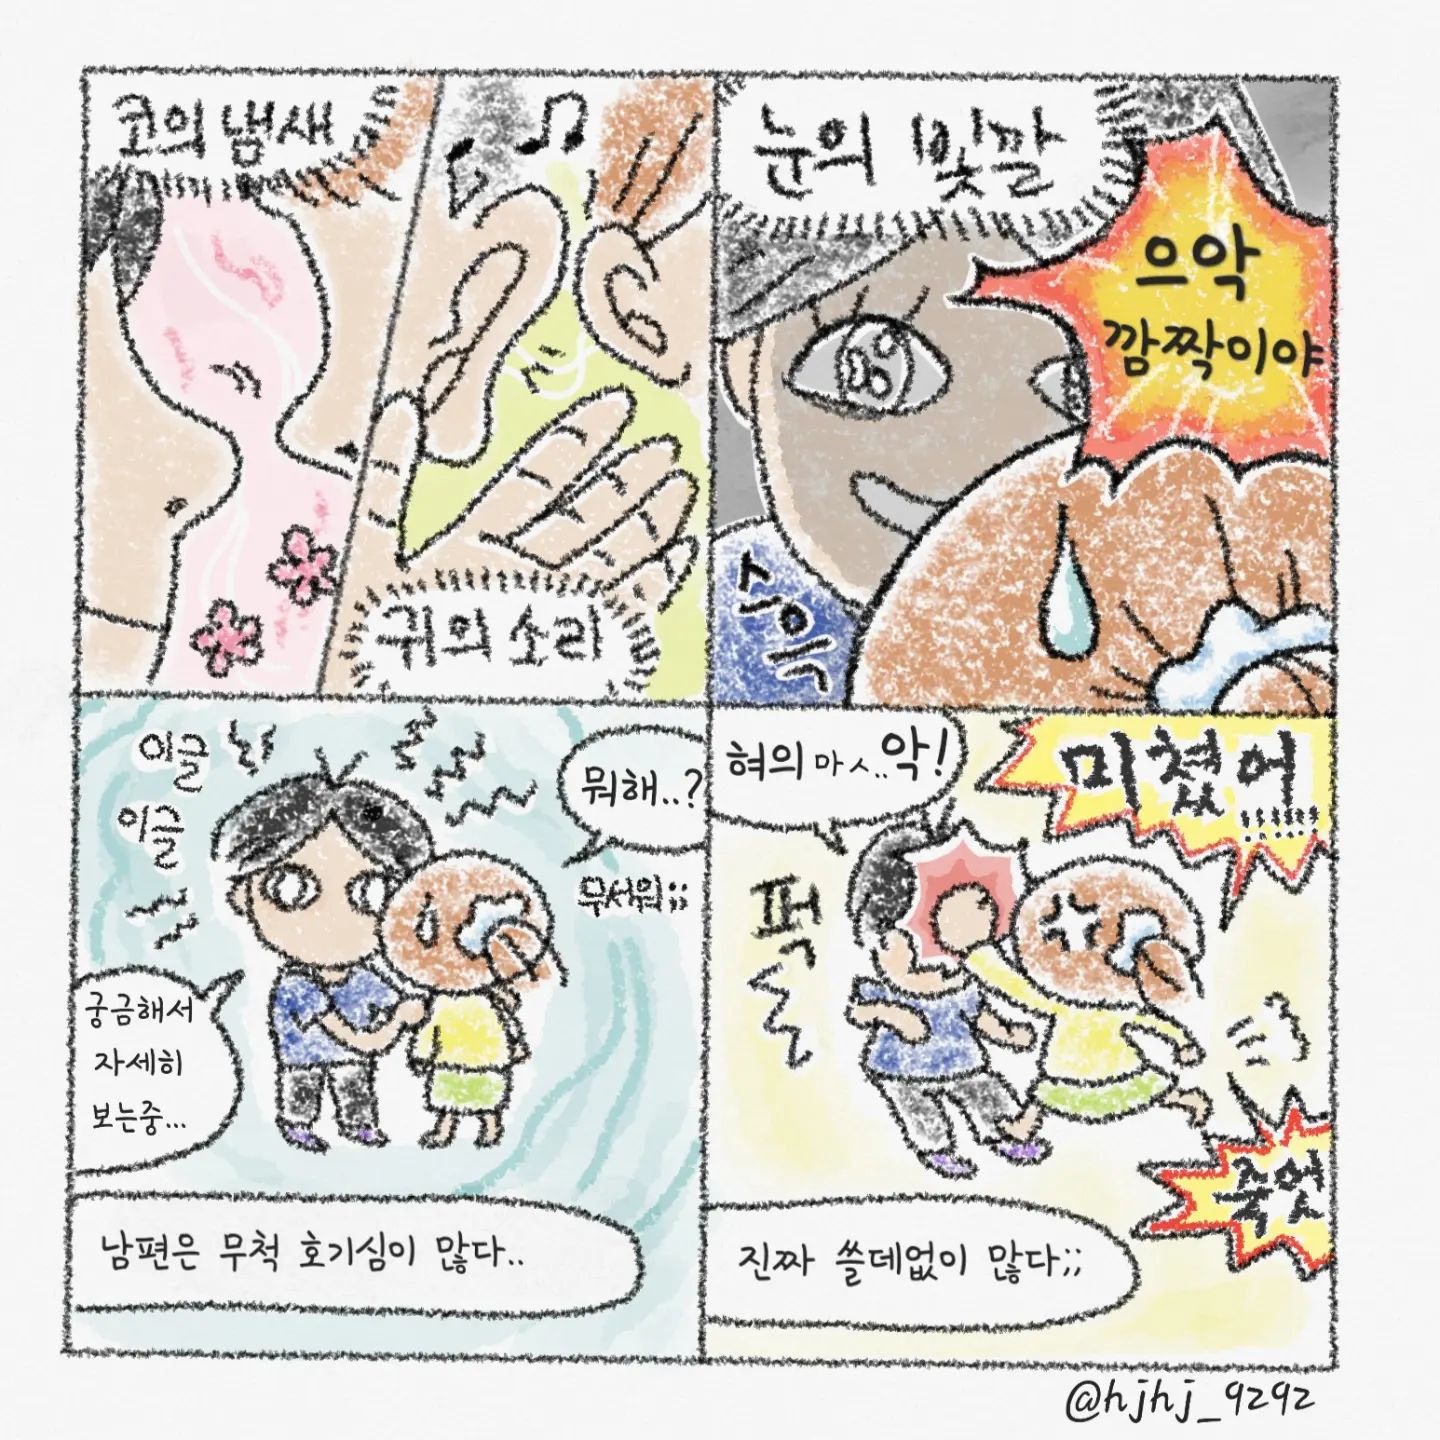 코의 냄새
귀의 소리
눈의 빛깔
으악
깜짝이야
스윽
이글
이글
뭐해..?
무서워;;
궁금해서
자세히
보는중...
남편은 무척 호기심이 많다..
혀의 마ㅅ..악!
미쳤어!!!!!!
퍽
죽엇
진짜 쓸데없이 많다;;
@hjhj_9292